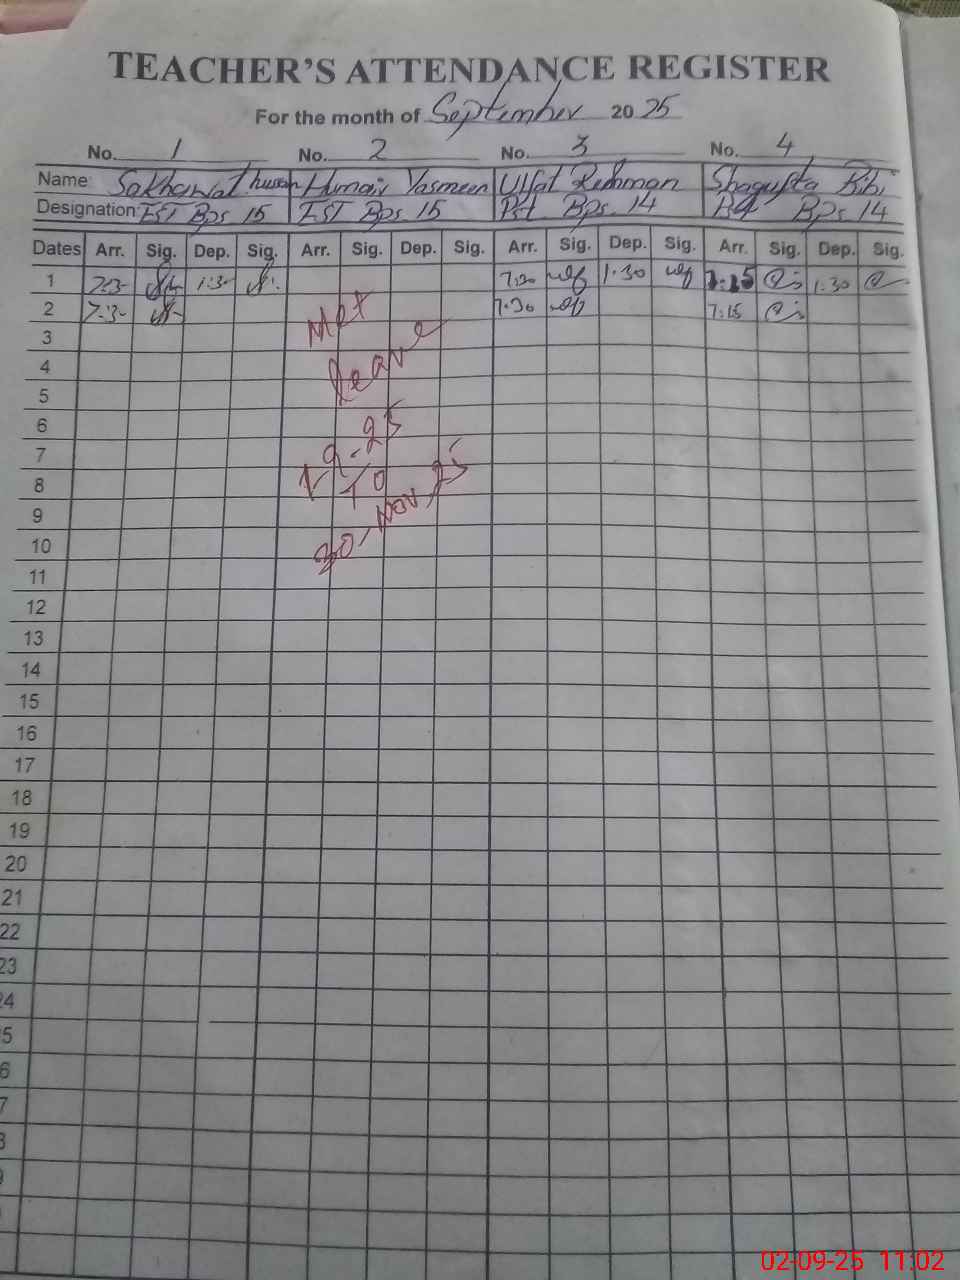 TEACHER'S ATTENDANCE REGISTER
For the month of September 2025
No. 1 No. 2 No. 3 No. 4
Name: Sakhawat hussain Humair Yasmeen Ulfat Rehman Shagufta Bibi
Designation: EST Bps 15 EST Bps 15 Pst Bps 14 Bps 14
Dates Arr. Sig. Dep. Sig. Arr. Sig. Dep. Sig. Arr. Sig. Dep. Sig. Arr. Sig. Dep. Sig.
1 7:3- 1:3- 7:30 1.30 7:15 1.30
2 7:3- 7:30 7:15
Met
3
leave
4
5
6
1-9-25
7
To
8
30-Nov 25
9
10
11
12
13
14
15
16
17
18
19
20
21
22
23
24
5
6
7
02-09-25 11:02